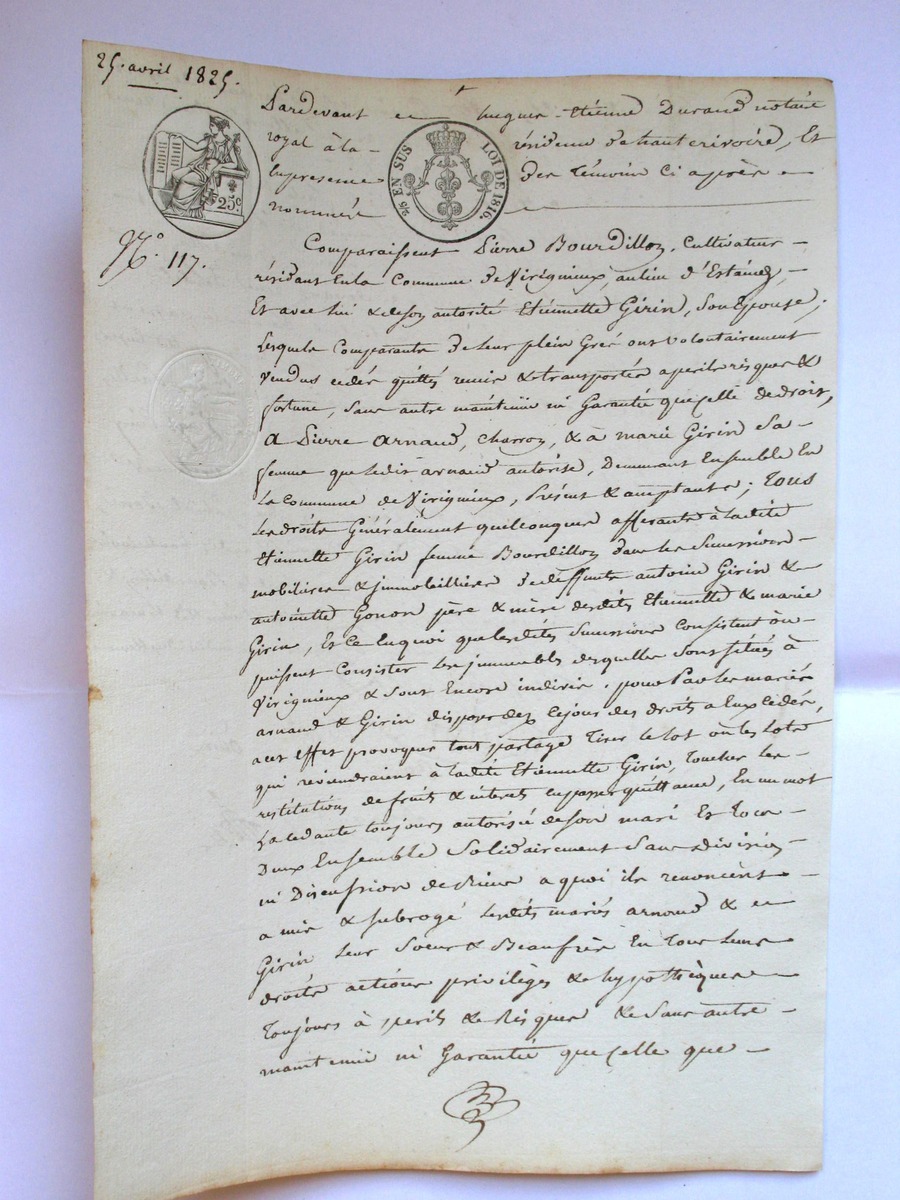 25. avril 1825.
Pardevant me hugues-Etienne Durand notaire
royal à la résidence de hauterivoire, Et
En presence des Témoins Ci après
nommés
25c
2/5 EN SUS LOI DE 1816.
No. 117.
Comparaissent Pierre Bourdillon, Cultivateur
résidant En la Commune de Virigneux, au lieu d'Estaing,
Et avec lui & de son autorité Etiennette Girin, Son Epouse;
Lesquels Comparants de Leur plein Gré ont volontairement
Vendus cédés quittés remis & transportés a perils risques &
fortune, Sans autre maintenir ni Garantie que celle de droit,
A Pierre Arnaud, Charron, & à marie Girin Sa
femme que ledit arnaud autorise, Demeurant Ensemble En
La Commune de Virigneux, Présent & acceptants; Tous
Les droits Généralement quelconques afferants à ladite
Etiennette Girin femme Bourdillon dans les Successions
mobilières & immobillières de deffunts antoine Girin &
antoinette Gonon père & mère desdits Etiennette & marie
Girin, Et Ce En quoi que lesdites Successions Consistent ou
puissent Consister Les immeubles desquelles Sont situés à
Virigneux & Sont Encore indivis. pour Par les mariés
arnaud & Girin disposer dez ce jour des droits a Eux Cédés,
a cet effet provoquer tout partage Tirer le lot ou les lots
qui reviendraient à ladite Etiennette Girin, Toucher Les
restitutions de fruits & interets en passer quittance, En un mot
La cedante toujours autorisée de son mari Et Tous
Deux Ensemble Solidairement Sans division
ni Discussion de Biens a quoi ils renoncent
a mis & subrogé lesdits mariés arnaud & 
Girin Leur Soeur & Beaufrère En Tous Leurs
droits actions privilèges & hypothèques
Toujours à perils & Risques & Sans autre
maintenir ni Garantie que celle que